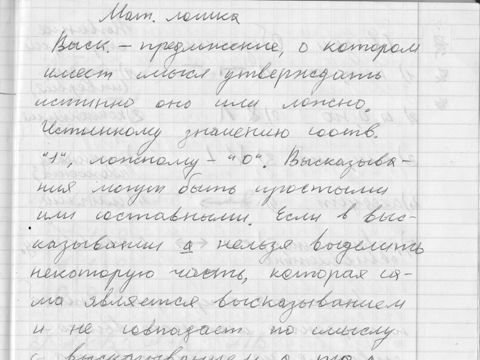 Мат. логика
Выск. – предложение, о котором
имеет смысл утверждать
истинно оно или ложно.
Истинному значению соотв.
"1", ложному – "0". Высказыва-
ния могут быть простыми
или составными. Если в выс-
казывании а нельзя выделить
некоторую часть, которая са-
ма является высказыванием
и не совпадает по смыслу
с высказыванием а, то